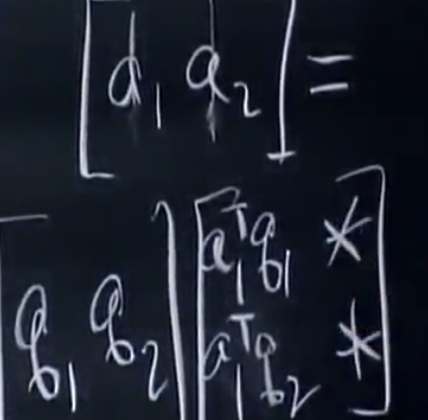 [a₁ a₂] =
[q₁ q₂] [a₁ᵀq₁ *
a₁ᵀq₂ *]